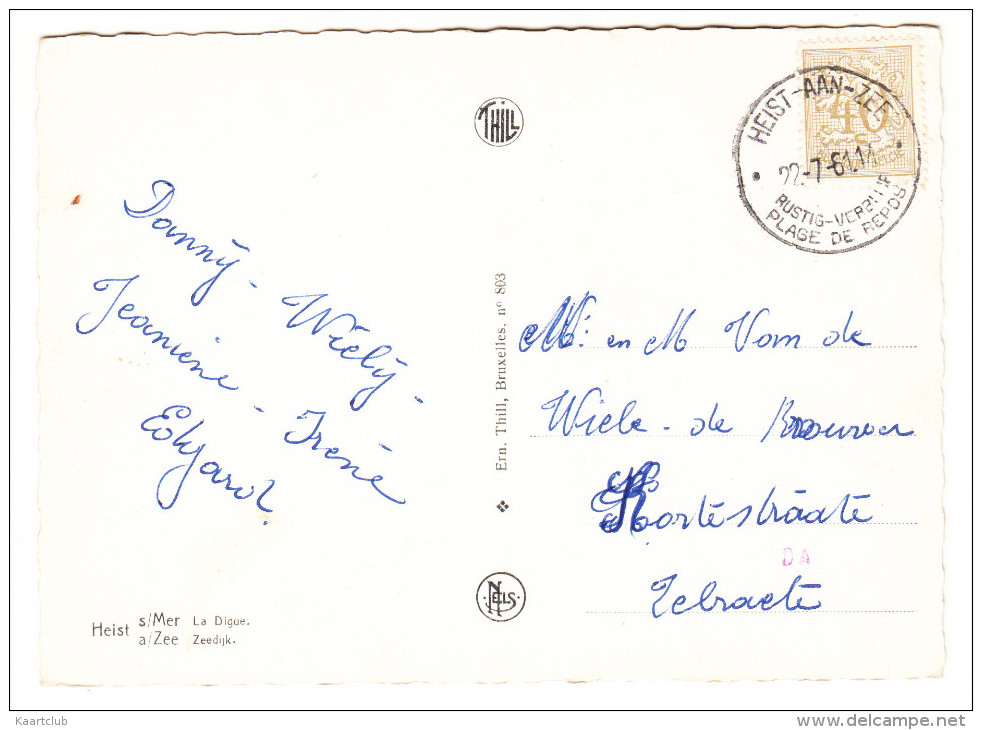 THILL
40
HEIST-AAN-ZEE
22-7-61.14
RUSTIG-VERBLIJF
PLAGE DE REPOS
Danny - Wiely -
Jeaniene - Irène
Edgard
Ern. Thill, Bruxelles, nº 803
Mr: en M Van de
Wiele - de Brouwer
Kortestraate
DA
Zelzaete
NELS
Heist s/Mer La Digue.
a/Zee Zeedijk.
Kaartclub
www.delcampe.net